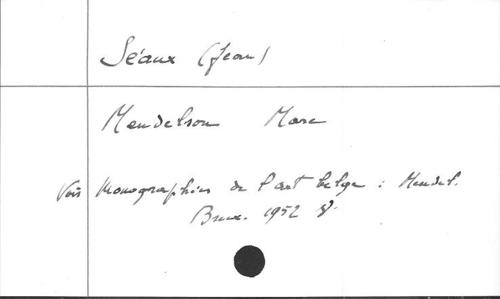 Séaux (Jean)
Mendelson Marc
Voir Monographies de l'art belge : Mendel.
Brux. 1952 8°